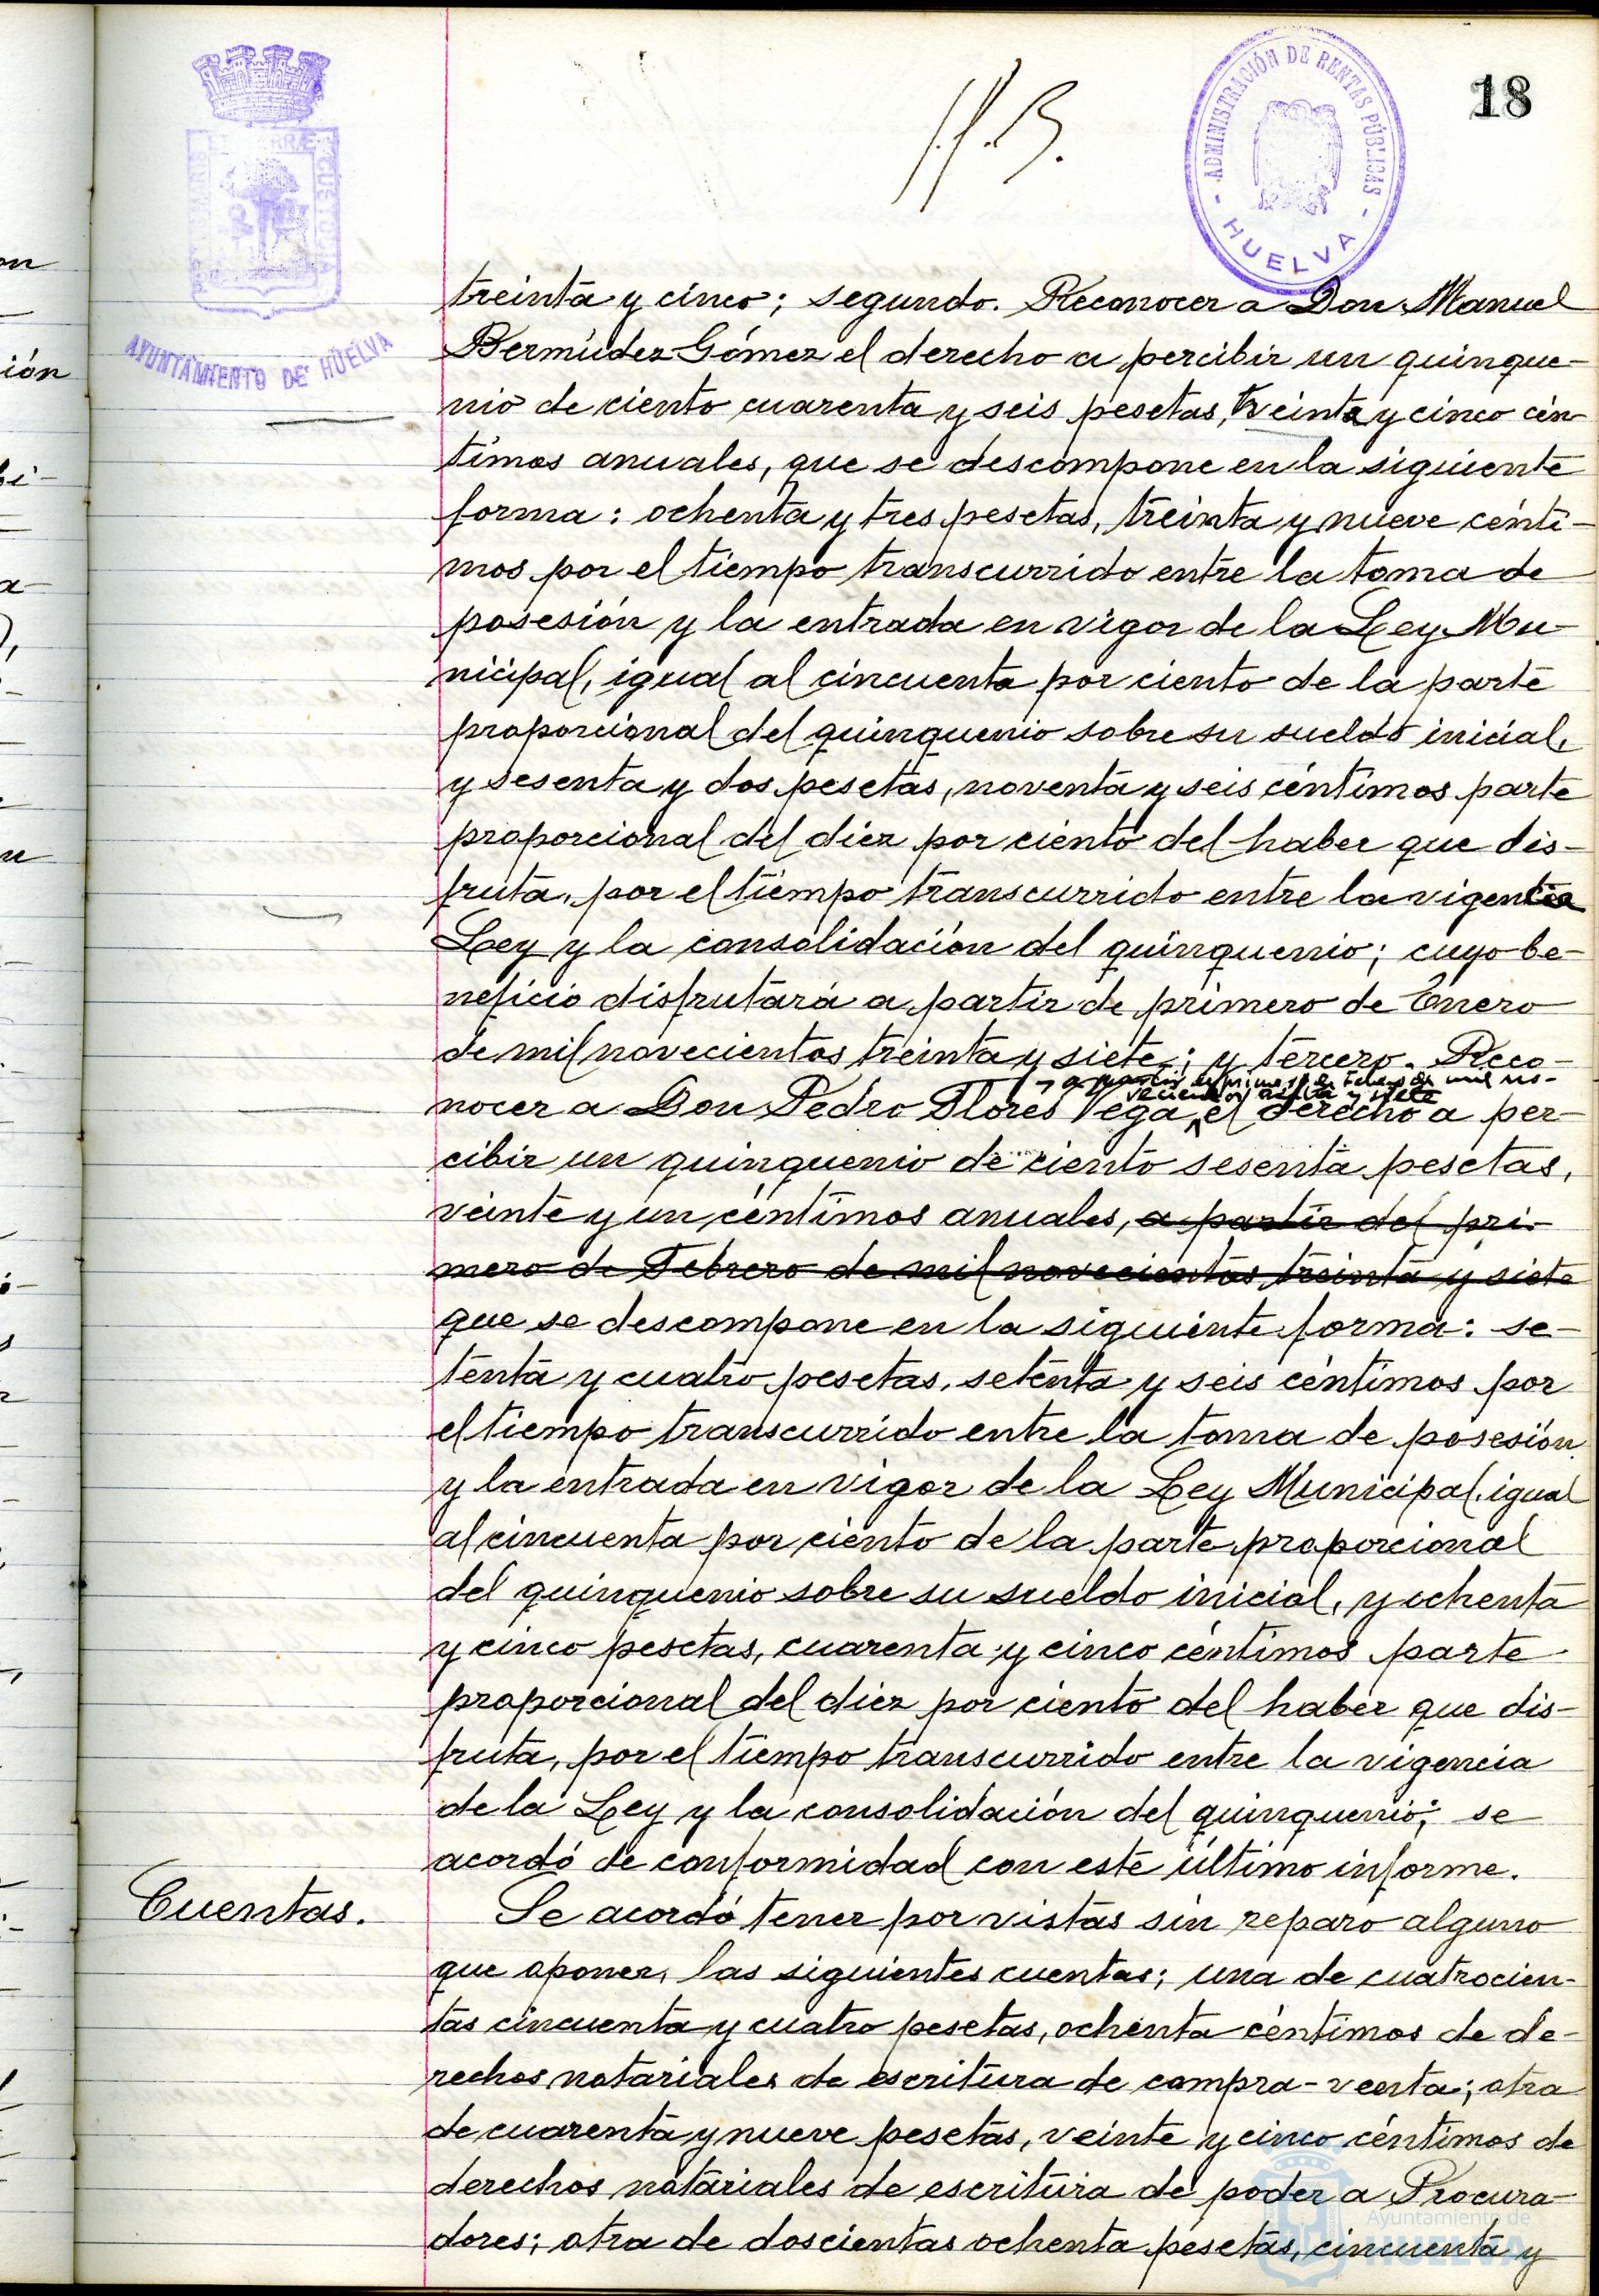 18
ADMINISTRACIÓN DE RENTAS PÚBLICAS
HUELVA
AYUNTAMIENTO DE HUELVA
treinta y cinco; segundo. Reconocer a Don Manuel
Bermúdez Gómez el derecho a percibir un quinque-
nio de ciento cuarenta y seis pesetas, treinta y cinco cén
timos anuales, que se descompone en la siguiente
forma: ochenta y tres pesetas, treinta y nueve cénti-
mos por el tiempo transcurrido entre la toma de
posesión y la entrada en vigor de la Ley Mu-
nicipal, igual al cincuenta por ciento de la parte
proporcional del quinquenio sobre su sueldo inicial,
y sesenta y dos pesetas, noventa y seis céntimos parte
proporcional del diez por ciento del haber que dis-
fruta, por el tiempo transcurrido entre la vigente
Ley y la consolidación del quinquenio; cuyo be-
neficio disfrutará a partir de primero de Enero
de mil novecientos treinta y siete; y tercero. Reco-
y a partir de primero de Febrero de mil no-
vecientos treinta y siete
nocer a Don Pedro Flores Vega, el derecho a per-
cibir un quinquenio de ciento sesenta pesetas,
veinte y un céntimos anuales, a partir del pri-
mero de Febrero de mil novecientos treinta y siete
que se descompone en la siguiente forma: se-
tenta y cuatro pesetas, setenta y seis céntimos por
el tiempo transcurrido entre la toma de posesión
y la entrada en vigor de la Ley Municipal, igual
al cincuenta por ciento de la parte proporcional
del quinquenio sobre su sueldo inicial, y ochenta
y cinco pesetas, cuarenta y cinco céntimos parte
proporcional del diez por ciento del haber que dis-
fruta, por el tiempo transcurrido entre la vigencia
de la Ley y la consolidación del quinquenio; se
acordó de conformidad con este último informe.
Cuentas.
Se acordó tener por vistas sin reparo alguno
que oponer, las siguientes cuentas; una de cuatrocien-
tas cincuenta y cuatro pesetas, ochenta céntimos de de-
rechos notariales de escritura de compra-venta; otra
de cuarenta y nueve pesetas, veinte y cinco céntimos de
derechos notariales de escritura de poder a Procura-
dores; otra de doscientas ochenta pesetas, cincuenta y
Ayuntamiento de
HUELVA